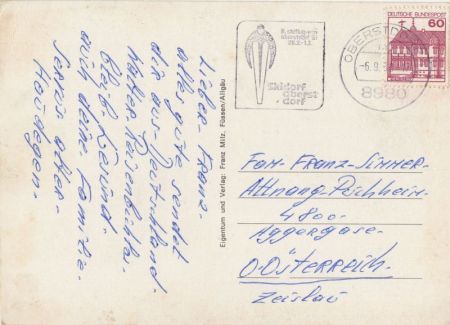 Lieber-Franz-
alles gute sendet
dir aus-Deutschland
Walter
bleib-Gesund-
auch deine-Familie-
Servus alter-
Haudegen-
Eigentum und Verlag: Franz Milz, Füssen/Allgäu
Skidorf
Oberst
dorf
OBERSTDORF
-6.9.
8980
DEUTSCHE BUNDESPOST
60
Fam-Franz-Simmer-
Attnang-Puchheim-
4800-
Aggergase-
O-Österreich-